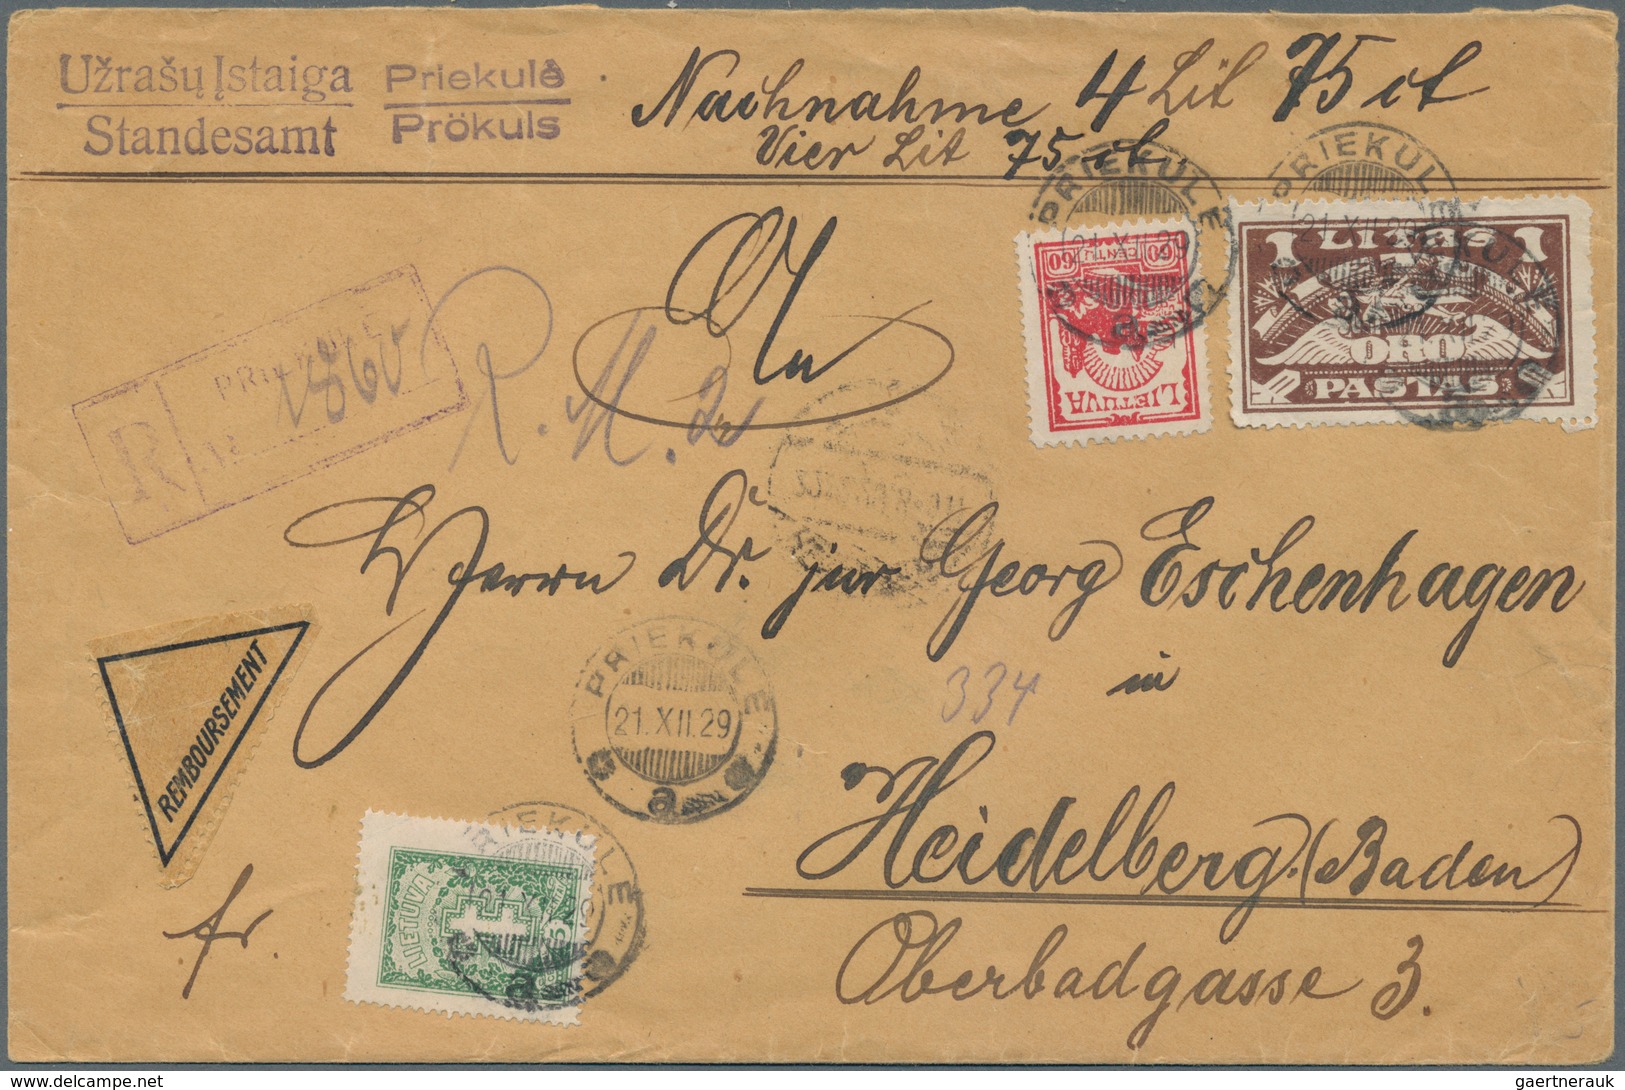 Užrašų Įstaiga
Standesamt
Priekulė
Prökuls
Nachnahme 4 Lit 75 ct
Vier Lit 75 ct
PRIEKULE
21.XII.29
a
PRIEKULE
21.XII.29
60 CENTŲ 60
LIETUVA
1 LITAS 1
ORO
PASTAS
R
1860
R. M. 2
An
Herrn Dr. jur Georg Eschenhagen
in
334
PRIEKULE
21.XII.29
a
REMBOURSEMENT
Heidelberg. (Baden)
Oberbadgasse 3.
fr.
LIETUVA
5
PRIEKULE
a
www.delcampe.net
gaertnerauk